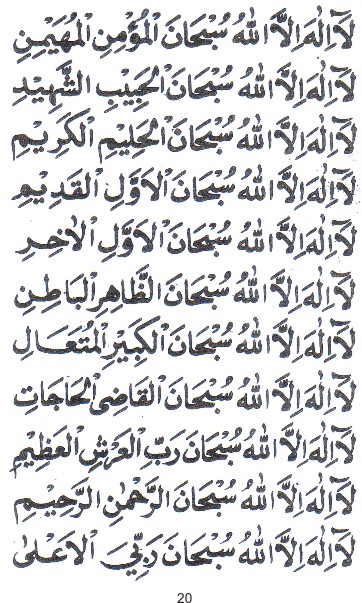 لَآ اِلٰهَ اِلَّا اللّٰهُ سُبْحَانَ الْمُؤْمِنِ الْمُهَيْمِنِ
لَآ اِلٰهَ اِلَّا اللّٰهُ سُبْحَانَ الْحَبِيْبِ الشَّهِيْدِ
لَآ اِلٰهَ اِلَّا اللّٰهُ سُبْحَانَ الْحَلِيْمِ الْكَرِيْمِ
لَآ اِلٰهَ اِلَّا اللّٰهُ سُبْحَانَ الْاَوَّلِ الْقَدِيْمِ
لَآ اِلٰهَ اِلَّا اللّٰهُ سُبْحَانَ الْاَوَّلِ الْاٰخِرِ
لَآ اِلٰهَ اِلَّا اللّٰهُ سُبْحَانَ الظَّاهِرِ الْبَاطِنِ
لَآ اِلٰهَ اِلَّا اللّٰهُ سُبْحَانَ الْكَبِيْرِ الْمُتَعَالِ
لَآ اِلٰهَ اِلَّا اللّٰهُ سُبْحَانَ الْقَاضِی الْحَاجَاتِ
لَآ اِلٰهَ اِلَّا اللّٰهُ سُبْحَانَ رَبِّ الْعَرْشِ الْعَظِيْمِ
لَآ اِلٰهَ اِلَّا اللّٰهُ سُبْحَانَ الرَّحْمٰنِ الرَّحِيْمِ
لَآ اِلٰهَ اِلَّا اللّٰهُ سُبْحَانَ رَبِّيَ الْاَعْلٰى
20